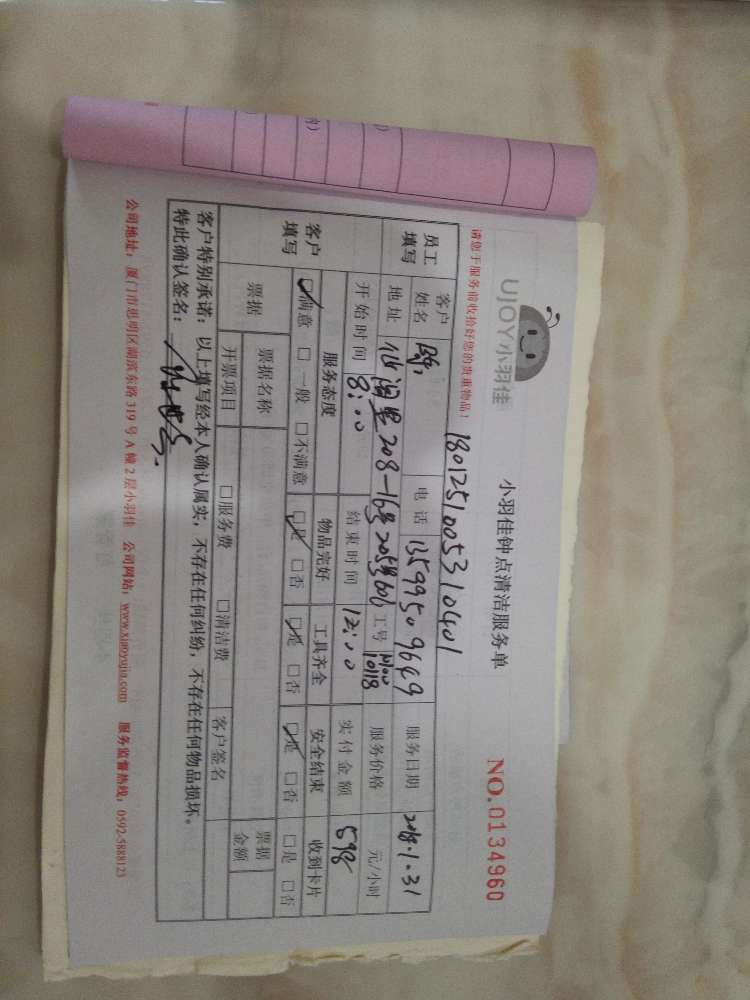 UJOY小羽佳
小羽佳钟点清洁服务单
NO.0134960
请您于服务前收拾好您的贵重物品!
180125100531040​1
员工填写
客户姓名 电话 13599509649 服务日期 2018.1.31
地址 仙阁里208-16号205 工号 10118 服务价格 元/小时
开始时间 8:00 结束时间 12:00 实付金额 598
客户填写
服务态度 物品完好 工具齐全 安全结束 收到卡片
☑满意 □一般 □不满意 ☑是 □否 ☑是 □否 ☑是 □否 □是 □否
票据 票据名称 票据金额
开票项目 □服务费 □清洁费 客户签名
客户特别承诺:以上填写经本人确认属实,不存在任何纠纷,不存在任何物品损坏。
特此确认签名:
公司地址:厦门市思明区湖滨东路319号A幢2层小羽佳 公司网站:www.xiaoyujia.com 服务监督热线:0592-5888123